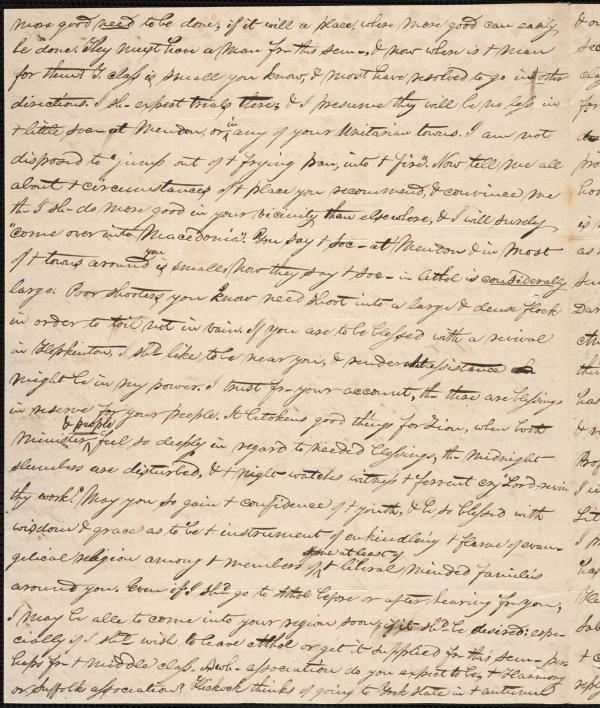 more good need to be done, if it will a place, where more good can easily
be done. They must have a man fr- this sem-, & now where is + man
for them? T. class is small you know, & most have resolved to go in other
directions. I sh- expect trials there; & I presume they will be no less in
+ little soc- at Mendon, or in any of your Unitarian towns. I am not
disposed to "jump out of + frying pan, into + fire". Now tell me all
about + circumstances of + place you recommend, & convince me
th- I sh- do more good in your vicinity than elsewhere, & I will surely
"come over into Macedonia". You say + soc- at Mendon & in most
of + towns around you is small. Now they say + soc- in Athol is considerably
large. Poor shooters you know need shoot into a large & dense flock
in order to toil not in vain. If you are to be blessed with a revival
in Hopkinton, I sh'd like to be near you, & render what assistance
might be in my power. I trust fr- your account, th- there are blessings
in reserve for your people. It betokens good things for Zion, when both
minister & people feel so deeply in regard to needed blessings, th- midnight
slumbers are disturbed, & + night watches witness + fervent cry "Lord revive
thy work." May you so gain + confidence of + youth, & be so blessed with
wisdom & grace as to be + instrument of enkindling + flame of evan-
gelical religion among + members of some at least of + liberal minded families
around you. Even if I sh'd go to Athol before or after hearing fr- you,
I may be able to come into your region soon, if it sh'd be desired: espe-
cially if I sh'd wish to leave Athol or get it supplied fr- this sem- per-
haps fr- + middle class. In wh- association do you expect to be, + Harmony
or Suffolk association? Hickock thinks of going to York state in + autumn